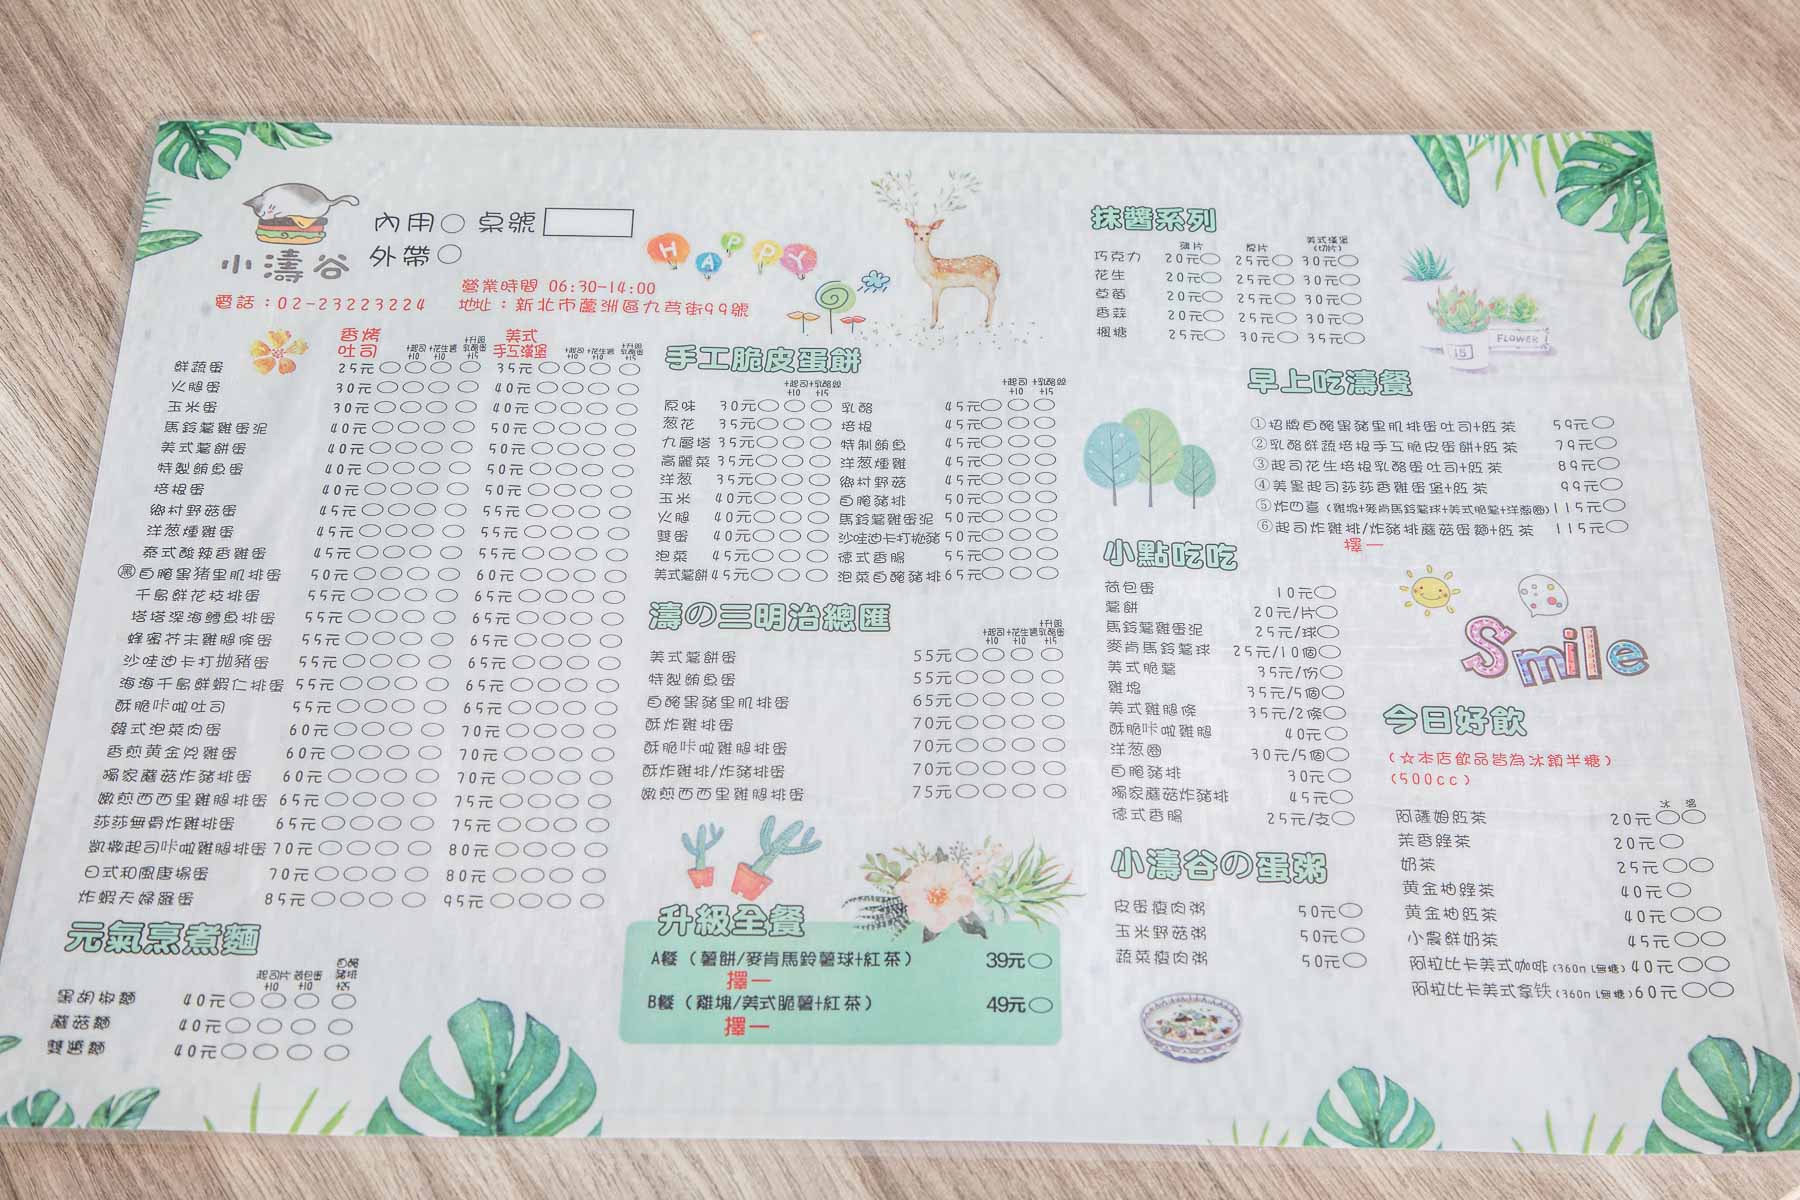 小濤谷
內用 桌號
外帶
HAPPY
營業時間 06:30-14:00
電話：02-23223224 地址：新北市蘆洲區九芎街99號
香烤吐司 +起司+10 +花生醬+10 +升級乳酪蛋+15 美式手工漢堡 +起司+10 +花生醬+10 +升級乳酪蛋+15
鮮蔬蛋 25元 35元
火腿蛋 30元 40元
玉米蛋 30元 40元
馬鈴薯雞蛋泥 40元 50元
美式薯餅蛋 40元 50元
特製鮪魚蛋 40元 50元
培根蛋 40元 50元
鄉村野菇蛋 45元 55元
洋葱燻雞蛋 45元 55元
泰式酸辣香雞蛋 45元 55元
黑 自醃黑豬里肌排蛋 50元 60元
千島鮮花枝排蛋 55元 65元
塔塔深海鱈魚排蛋 55元 65元
蜂蜜芥末雞腿條蛋 55元 65元
沙哇迪卡打拋豬蛋 55元 65元
海海千島鮮蝦仁排蛋 55元 65元
酥脆咔啦吐司 55元 65元
韓式泡菜肉蛋 60元 70元
香煎黃金兇雞蛋 60元 70元
獨家蘑菇炸豬排蛋 60元 70元
嫩煎西西里雞腿排蛋 65元 75元
莎莎無骨炸雞排蛋 65元 75元
凱撒起司咔啦雞腿排蛋 70元 80元
日式和風唐揚蛋 70元 80元
炸蝦天婦羅蛋 85元 95元
元氣烹煮麵
起司片+10 荷包蛋+10 自醃豬排+25
黑胡椒麵 40元
蘑菇麵 40元
雙醬麵 40元
手工脆皮蛋餅
+起司+10 +乳酪絲+15 +起司+10 +乳酪絲+15
原味 30元 乳酪 45元
葱花 35元 培根 45元
九層塔 35元 特制鮪魚 45元
高麗菜 35元 洋葱燻雞 45元
洋葱 35元 鄉村野菇 45元
玉米 40元 自醃豬排 50元
火腿 40元 馬鈴薯雞蛋泥 50元
雙蛋 40元 沙哇迪卡打拋豬 50元
泡菜 45元 德式香腸 55元
美式薯餅 45元 泡菜自醃豬排 65元
濤の三明治總匯
+起司+10 +花生醬+10 +升級乳酪蛋+15
美式薯餅蛋 55元
特製鮪魚蛋 55元
自醃黑豬里肌排蛋 65元
酥炸雞排蛋 70元
酥脆咔啦雞腿排蛋 70元
酥炸雞排/炸豬排蛋 70元
嫩煎西西里雞腿排蛋 75元
升級全餐
A餐（薯餅/麥肯馬鈴薯球+紅茶） 39元
擇一
B餐（雞塊/美式脆薯+紅茶） 49元
擇一
抹醬系列
薄片 厚片 美式漢堡(切片)
巧克力 20元 25元 30元
花生 20元 25元 30元
草莓 20元 25元 30元
香蒜 20元 25元 30元
楓糖 25元 30元 35元
FLOWER
15
早上吃濤餐
①招牌自醃黑豬里肌排蛋吐司+紅茶 59元
②乳酪鮮蔬培根手工脆皮蛋餅+紅茶 79元
③起司花生培根乳酪蛋吐司+紅茶 89元
④美墨起司莎莎香雞蛋堡+紅茶 99元
⑤炸四喜（雞塊+麥肯馬鈴薯球+美式脆薯+洋葱圈） 115元
⑥起司炸雞排/炸豬排蘑菇蛋麵+紅茶 115元
擇一
小點吃吃
荷包蛋 10元
薯餅 20元/片
馬鈴薯雞蛋泥 25元/球
麥肯馬鈴薯球 25元/10個
美式脆薯 35元/份
雞塊 35元/5個
美式雞腿條 35元/2條
酥脆咔啦雞腿 40元
洋葱圈 30元/5個
自醃豬排 30元
獨家蘑菇炸豬排 45元
德式香腸 25元/支
Smile
小濤谷の蛋粥
皮蛋瘦肉粥 50元
玉米野菇粥 50元
蔬菜瘦肉粥 50元
今日好飲
（☆本店飲品皆為冰鎮半糖）
（500cc）
冰 溫
阿薩姆紅茶 20元
茉香綠茶 20元
奶茶 25元
黃金柚綠茶 40元
黃金柚紅茶 40元
小農鮮奶茶 45元
阿拉比卡美式咖啡(360ml無糖) 40元
阿拉比卡美式拿铁(360ml無糖) 60元